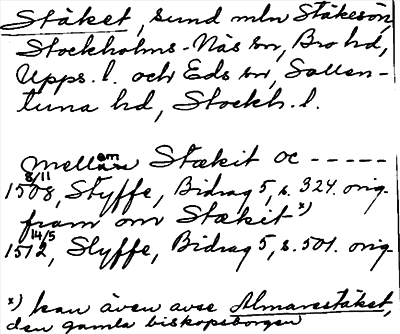 Stäket, sund mln Stäkesön,
Stockholms-Näs sn, Bro hd,
Upps. l. och Eds sn, Sollen-
tuna hd, Stockh. l.
mellan om Stækit oc -----
1508 8/11, Styffe, Bidrag 5, s. 324. orig.
fram om Stækit x)
1512 14/5, Styffe, Bidrag 5, s. 501. orig.
x) kan även avse Almarestäket,
den gamla biskopsborgen